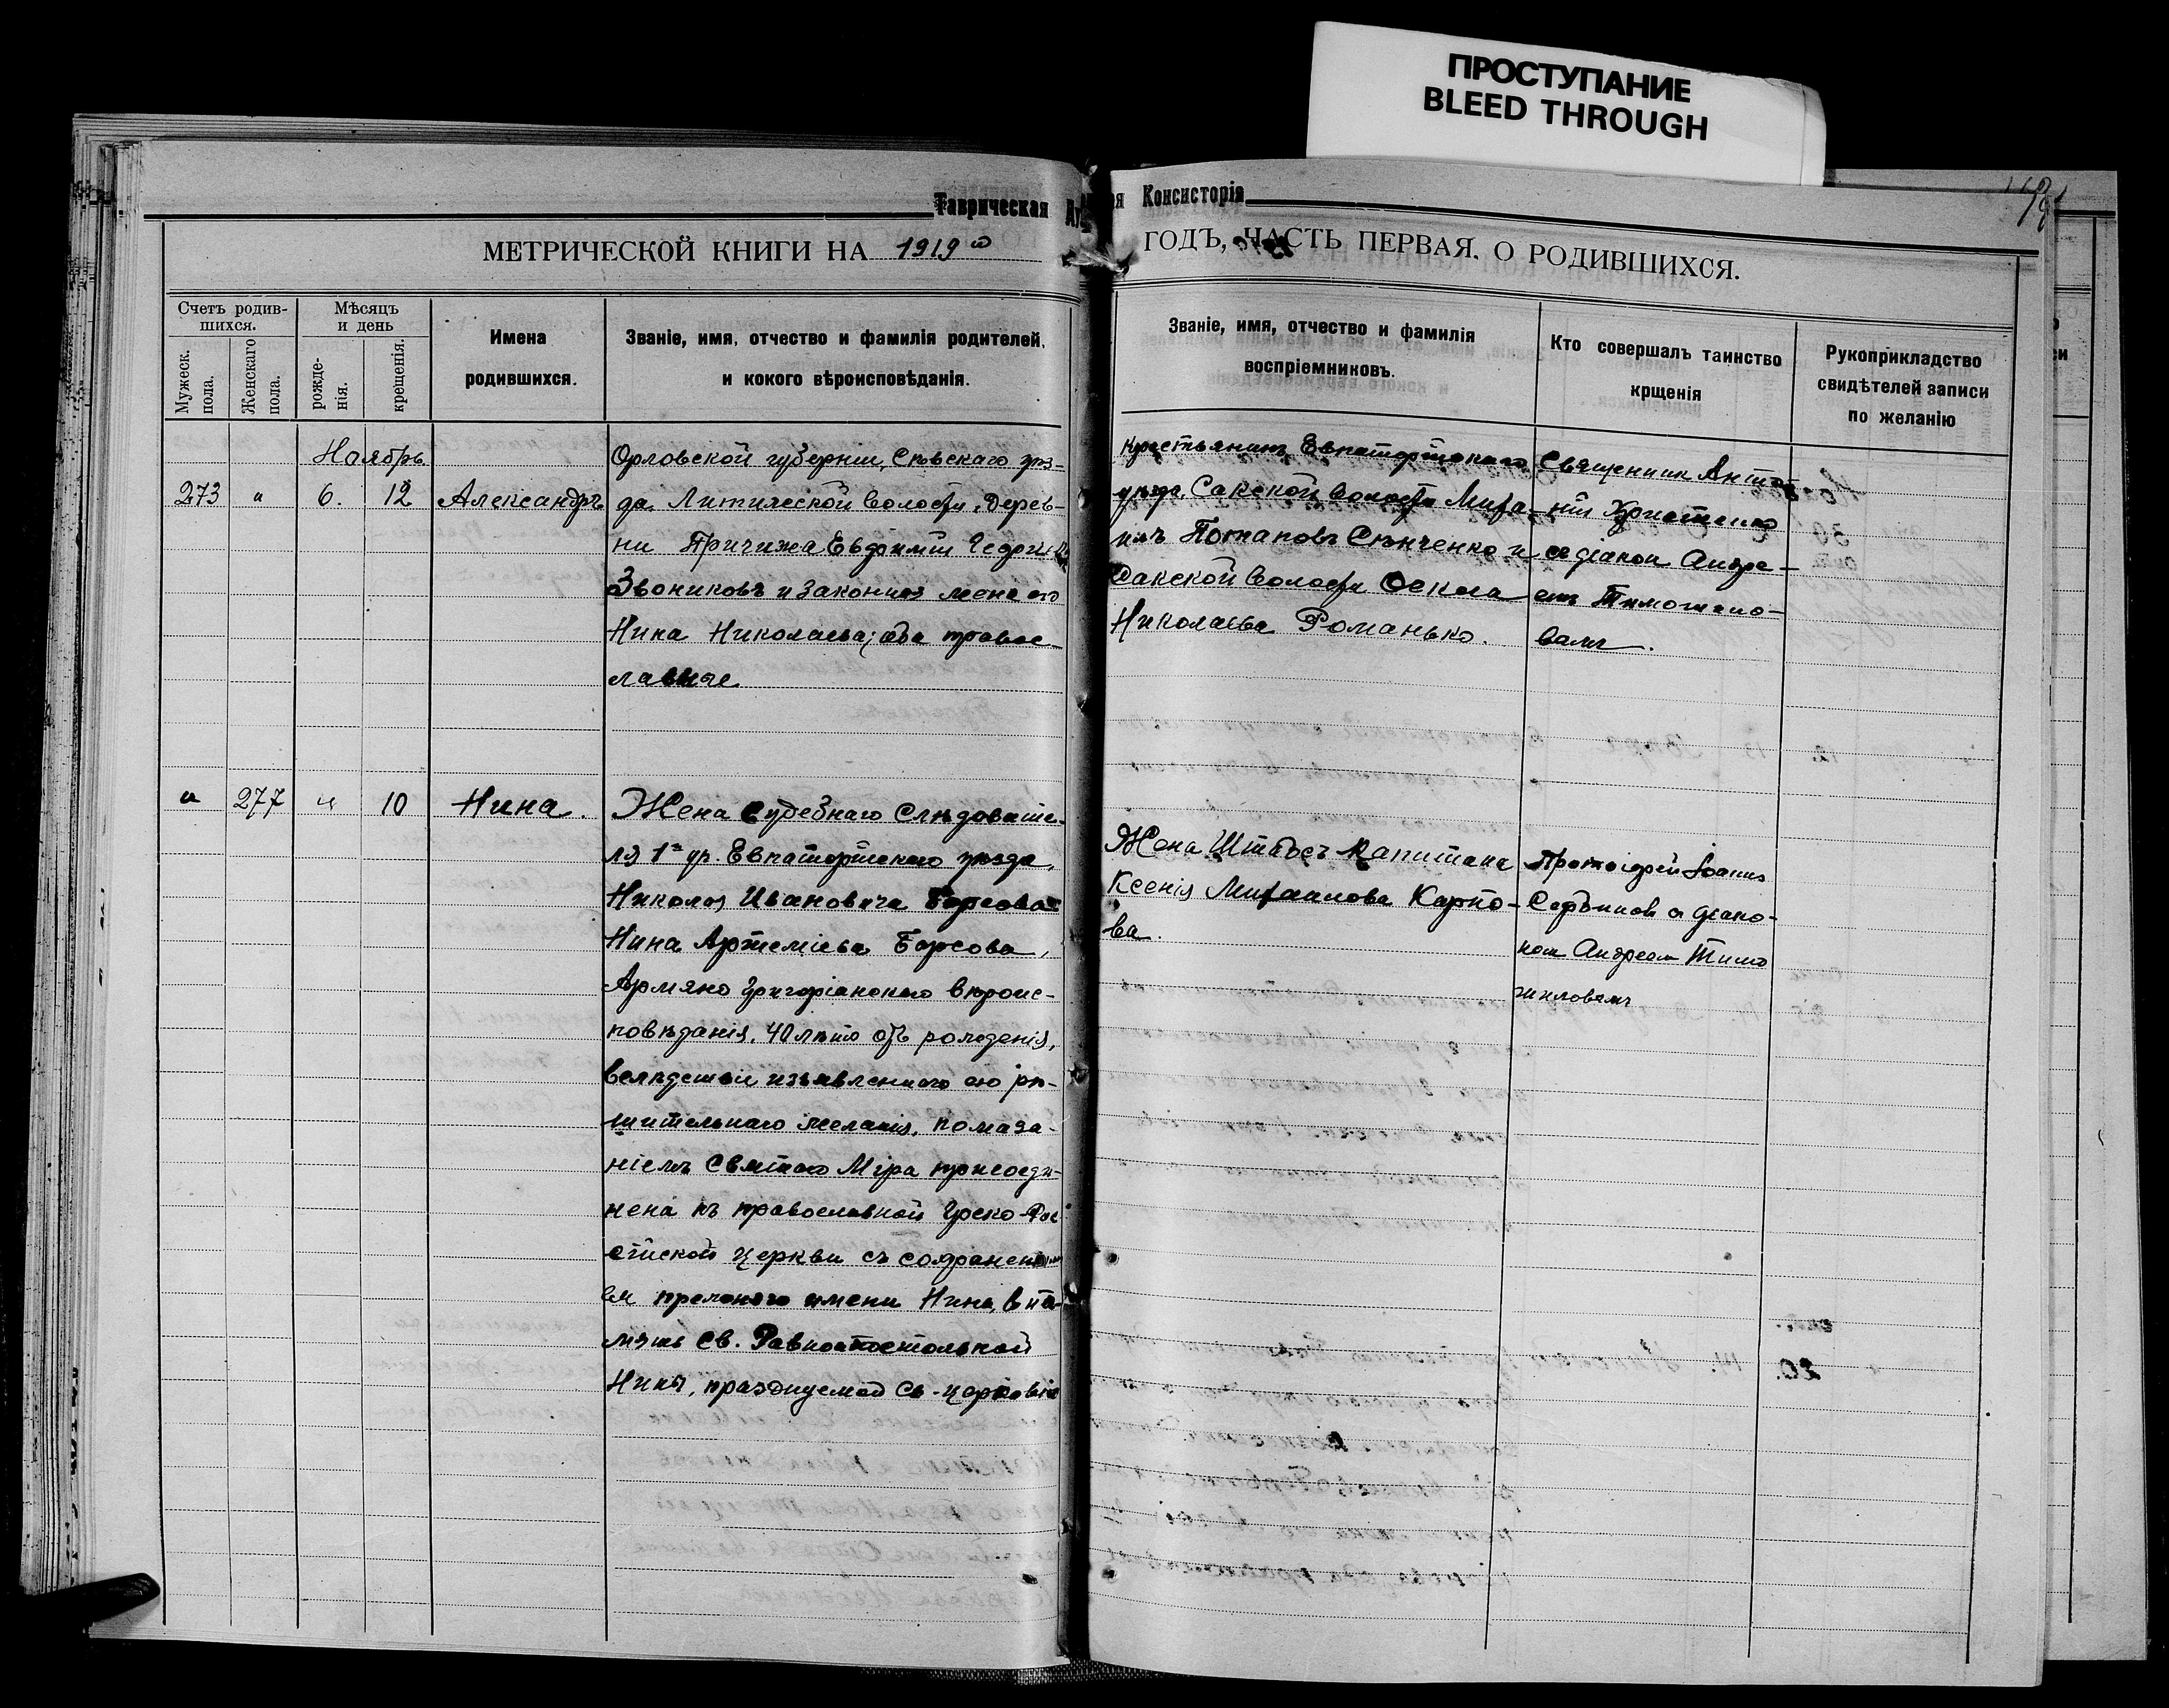 ПРОСТУПАНИЕ
BLEED THROUGH
Таврическая
Консисторія
МЕТРИЧЕСКОЙ КНИГИ НА 1919
ГОДЪ, ЧАСТЬ ПЕРВАЯ, О РОДИВШИХСЯ.
Счетъ родив-
шихся.
Мужеск.
пола.
Женскаго
пола.
Мѣсяцъ
и день
рожде-
нія.
крещенія.
Имена
родившихся.
Званіе, имя, отчество и фамилія родителей,
и кокого вѣроисповѣданія.
Званіе, имя, отчество и фамилія
воспріемниковъ.
Кто совершалъ таинство
крщенія
Рукоприкладство
свидѣтелей записи
по желанію
Ноябрь
273 " 6. 12 Александръ
Орловской губерніи, Сѣвскаго уѣз-
да, волости, дерев-
ни Евфимій
Звониковъ и законная жена его
Нина Николаева; оба правос-
лавные
Крестьянинъ Евпаторійскаго
уѣзда, Сакской волости Миха-
илъ Потаповъ Сѣнченко и
Сакской волости
Николаева Романько.
Священникъ Анто-
ній
съ діакон Андре-
емъ Тимоѳено-
вымъ.
" 277 " 10 Нина.
Жена Судебнаго Слѣдовате-
ля 1 уч. Евпаторійскаго уѣзда,
Николая Ивановича
Нина Артеміева
Армяно Григоріанскаго вѣроис-
повѣданія, 40 лѣтъ отъ рожденія,
вслѣдствіе изъявленнаго ею рѣ-
шительнаго желанія, помаза-
ніемъ Святаго Мѵра присоеди-
нена къ православной Греко-Рос
сійской церкви съ сохраненіе
ем прежняго имени Нина, въ па-
мять Св. Равноапостольной
Нины, празднуемой Св. церковію
Жена Штабсъ Капитана
Ксенія Михаилова Карпо-
ва.
Протоіерей Іоаннъ
Сербиновъ съ діако-
ном Андреем Тимо